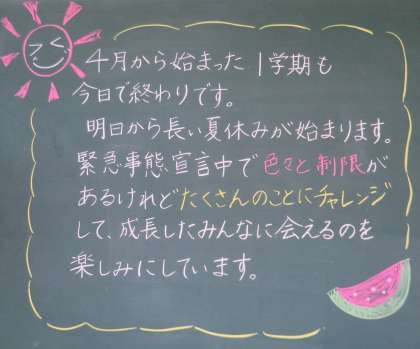 4月から始まった1学期も
今日で終わりです。
明日から長い夏休みが始まります。
緊急事態宣言中で色々と制限が
あるけれどたくさんのことにチャレンジ
して、成長したみんなに会えるのを
楽しみにしています。